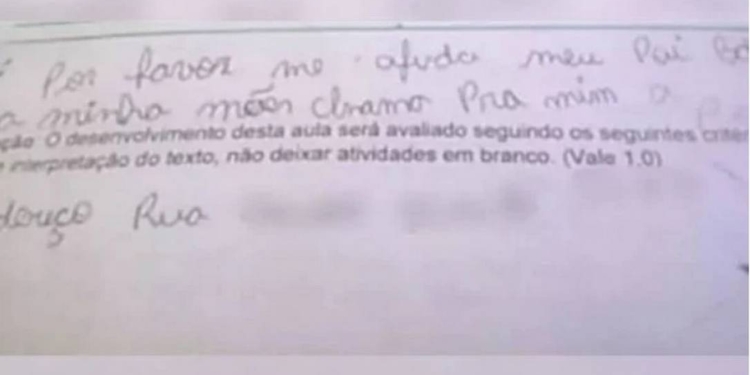 Por favor me afuda meu Pai
a minha mães chramo Pra mim a
ção O desenvolvimento desta aula será avaliado seguindo os seguintes crité
e interpretação do texto, não deixar atividades em branco. (Vale 1.0)
Rua